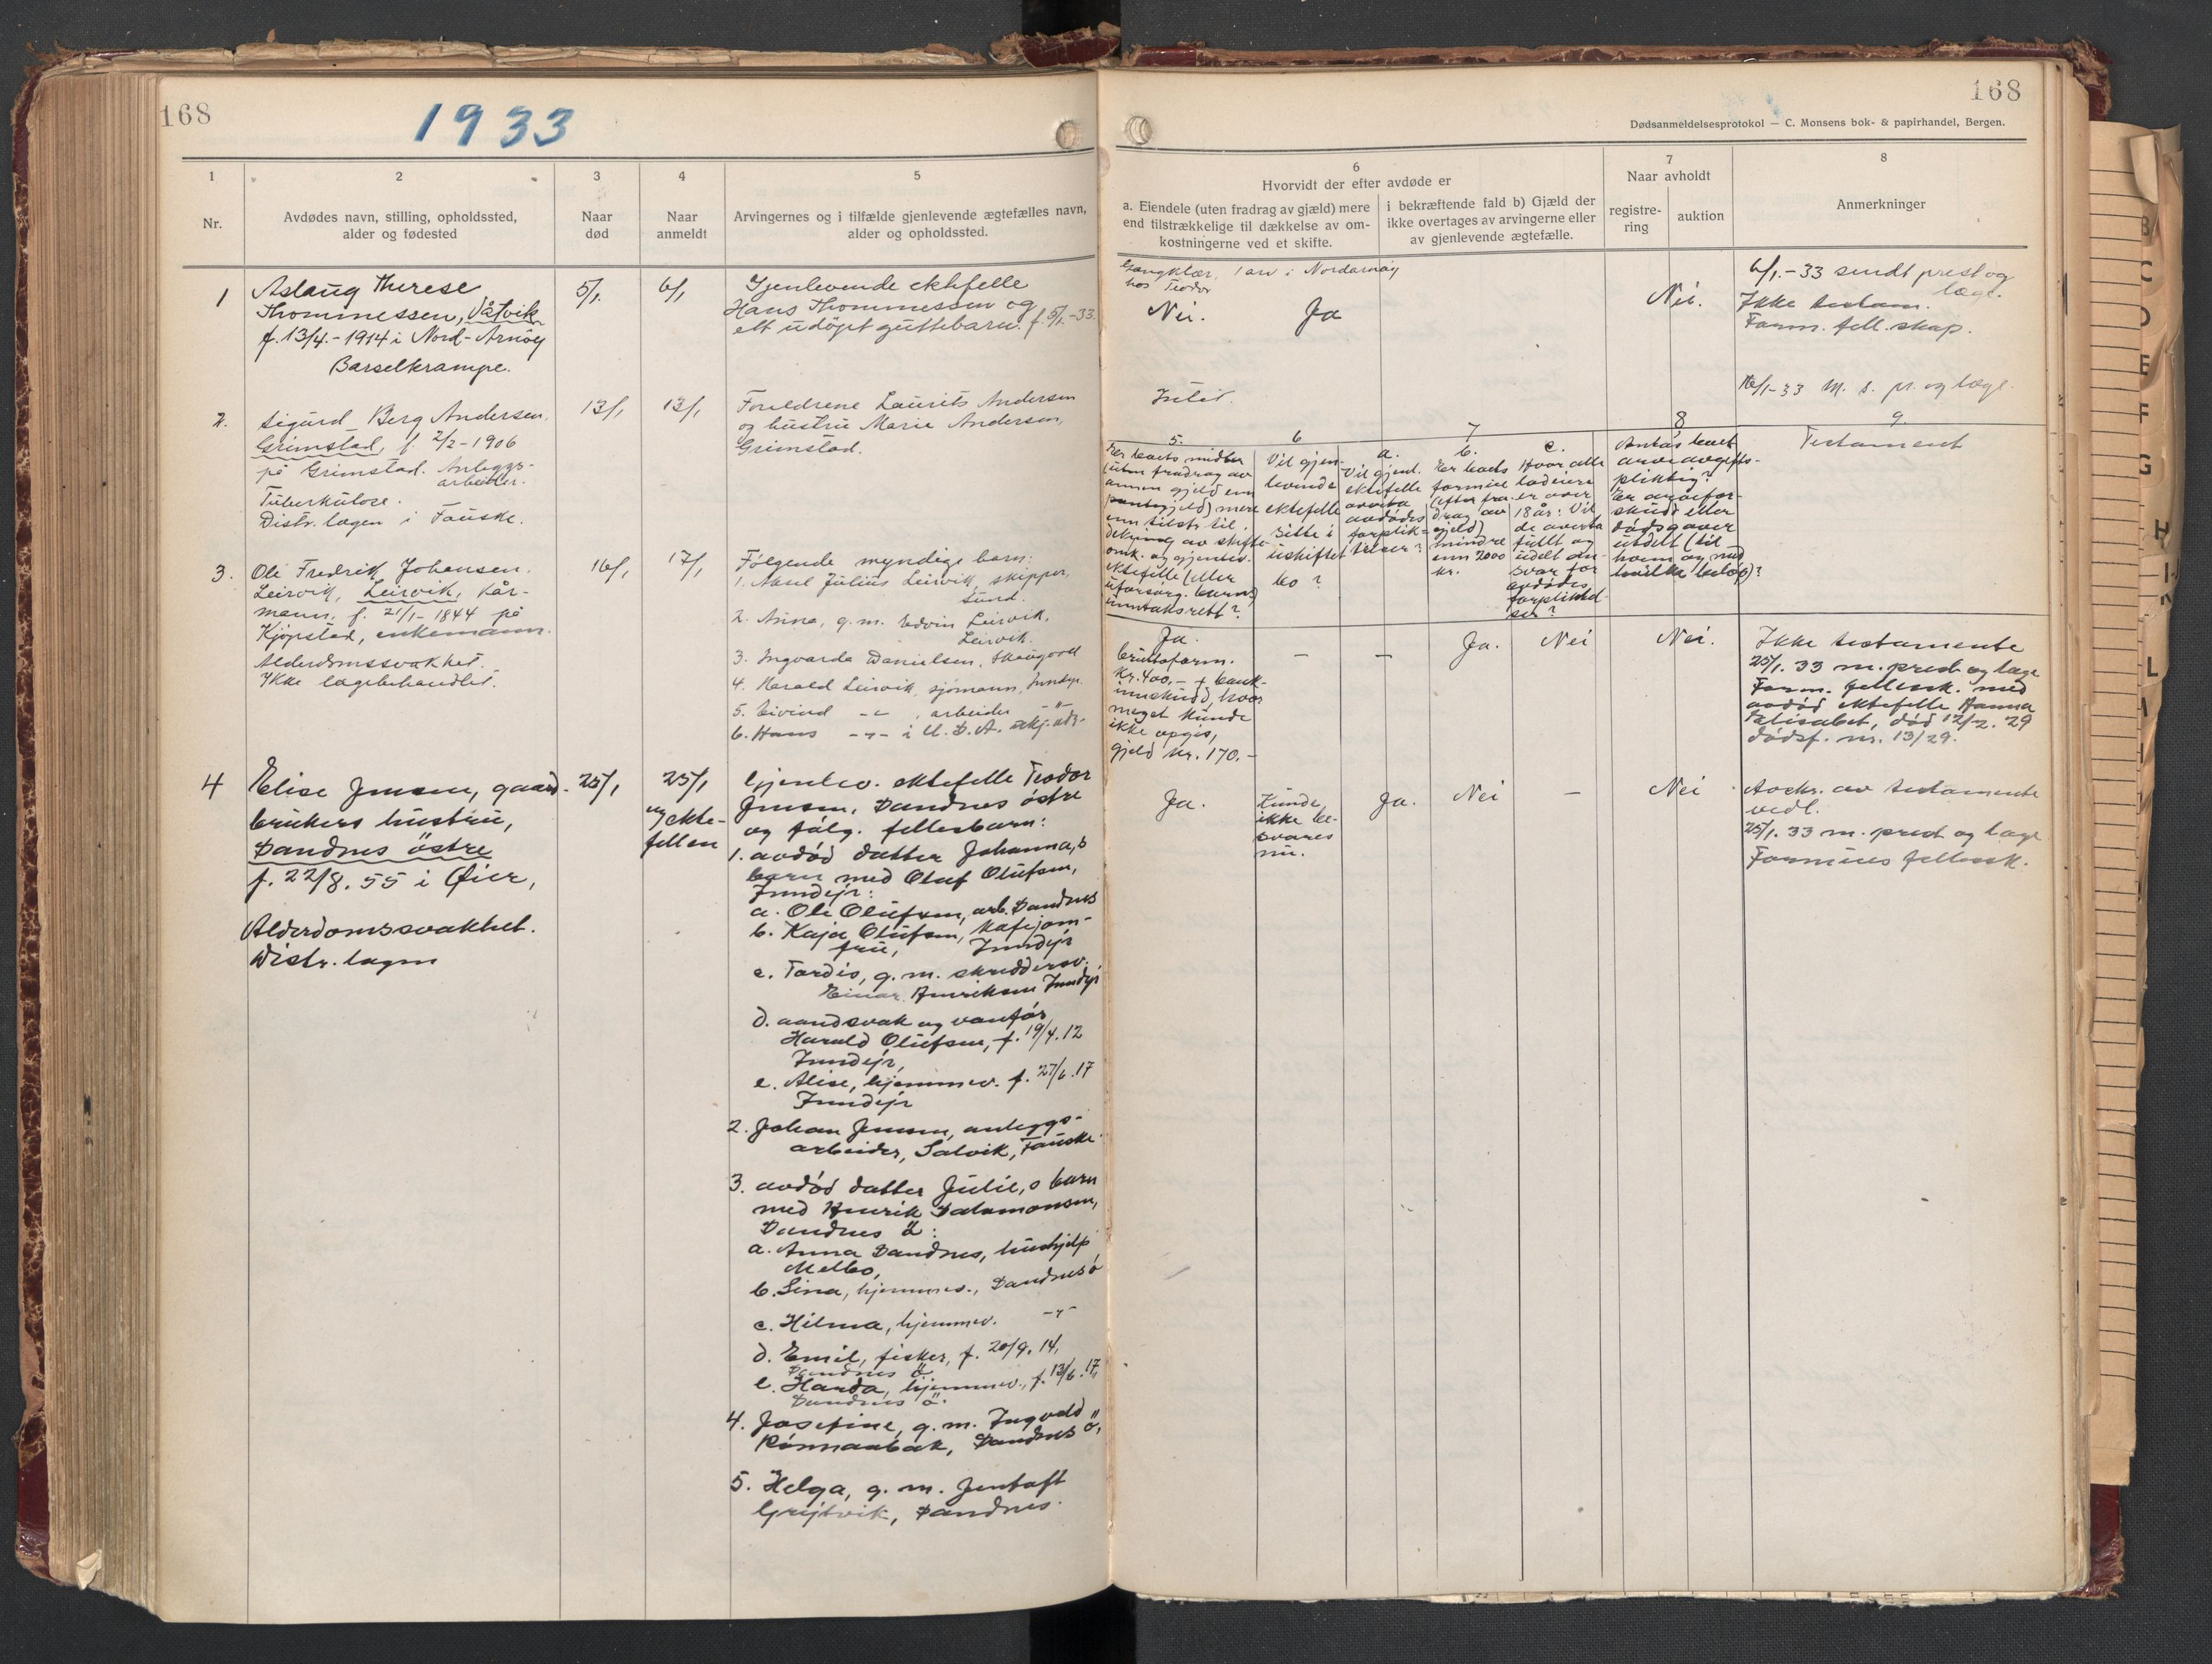 168
1933
168
Dødsanmeldelsesprotokol — C. Monsens bok- & papirhandel, Bergen.
1
Nr.
2
Avdødes navn, stilling, opholdssted,
alder og fødested
3
Naar
død
4
Naar
anmeldt
5
Arvingernes og i tilfælde gjenlevende ægtefælles navn,
alder og opholdssted.
6
Hvorvidt der efter avdøde er
a. Eiendele (uten fradrag av gjæld) mere
end tilstrækkelige til dækkelse av om-
kostningerne ved et skifte.
i bekræftende fald b) Gjæld der
ikke overtages av arvingerne eller
av gjenlevende ægtefælle.
7
Naar avholdt
registre-
ring
auktion
8
Anmerkninger
1
Aslaug Therese
Thommessen, Våtvik
f. 13/4.-1914 i Nord-Arnøy
Barselkrampe.
5/1.
6/1
Gjenlevende ektefelle
Hans Thommessen og
ett udøpt guttebarn. f. 5/1.-33.
Gangklær, 1 arv i Nordarnøy
hos Teodor
Nei.
Ja
Nei.
6/1.-33 sendt prest og
læge.
Ikke testam.
Form. fell.skap.
2.
Sigurd Berg Andersen.
Grimstad, f. 2/2-1906
på Grimstad. Anleggs-
arbeider.
Tuberkulose.
Distr. lægen i Fauske.
13/1
13/1
Foreldrene Laurits Andersen
og hustru Marie Andersen,
Grimstad.
Intet.
16/1-33 M. s. pr. og læge.
5.
Er boets midler
(uten fradrag av
annen gjeld enn
pantegjeld) mere
enn tilstr. til
dekning av skifte
omk. og gjenlev.
ektefelle (eller
uforsørg. barns)
unntaksrett?
6
Vil gjen-
levende
ektefelle
sitte i
uskiftet
bo?
7
a.
Vil gjenl.
ektefelle
overta
avdødes
forplik-
telser?
b.
Er boets
formue
(efter fra-
drag av
gjeld)
mindre
enn 2000
kr.
c.
Hvor alle
lodeiere
er over
18 år: Vil
de overta
fullt og
udelt an-
svar for
avdødes
forplikted-
ser?
8
Antas boet
arveavgifts-
pliktig?
Er arvefor-
skudd eller
dødsgaver
utdelt (til
hvem og med
hvilke beløp)?
9.
Testament
3.
Ole Fredrik Johansen.
Leirvik, Leirvik, kår-
mann, f. 21/1-1844 på
Kjøpstad, enkemann.
Alderdomssvakhet.
Ikke lægebehandlet.
16/1
17/1
Følgende myndige barn:
1. Juliús Leirvik, skipper,
Sund.
2. Anna, g. m. Edvin Leirvik,
Leirvik.
3. Ingvarda Danielsen, Skaugvoll
4. Harald Leirvik, sjømann, Inndyr.
5. Eivind -"-, arbeider -"-
6. Hans -"- i U.S.A.
Ja.
Bruttoform.
Kr. 400,- + bank-
innskudd, hvor
meget kunde
ikke opgis,
gjeld kr. 170.-
—
—
Ja.
Nei
Nei.
Ikke testamente
25/1. 33 m. prest og læge
Form. fellessk. med
avdød ektefelle Hanna
Elisabet, død 12/2. 29
dødsf. nr. 13/29.
4
Elise Jensen, gaard-
brukers hustru,
Sandnes østre
f. 22/8. 55 i Øier,
Alderdomssvakhet.
Distr. lægen
25/1
25/1
av ekte-
fellen
Gjenlev. ektefelle Teodor
Jensen, Sandnes østre
og følg. fellesbarn:
1. avdød datter Johanna,s
barn med Oluf Olufsen,
Inndyr:
a. Ole Olufsen, arb. Sandnes
b. Kaja Olufsen, kafejom-
fru, Inndyr
c. Tordis, g. m. skreddersv.
Einar Henriksen Inndyr
d. aandsvak og vanfør
Harald Olufsen, f. 19/4. 12
Inndyr,
e. Alise, hjemmev. f. 27/6. 17
Inndyr
2. Johan Jensen, anleggs-
arbeider, Salvik, Fauske.
3. avdød datter Julie,s barn
med Henrik Salamonsen,
Sandnes ö:
a. Anna Sandnes, hushjelp
Melbo,
b. Lina, hjemmev., Sandnes ö
c. Hilma, hjemmev. -"-
d. Emil, fisker, f. 20/9. 14,
Sandnes ö.
e. Harda, hjemmev., f. 13/6. 17,
Sandnes ö.
4. Josefine, g. m. Ingvald
Rønnaabak, Sandnes ö,
5. Helga, g. m. Jentoft
Grytvik, Sandnes.
Ja.
Kunde
ikke be-
svares
nu.
Ja.
Nei
—
Nei
Avskr. av testamente
vedl.
25/1. 33 m. prest og læge
Formues fellessk.
B
C
D
E
F
G
H
K
L